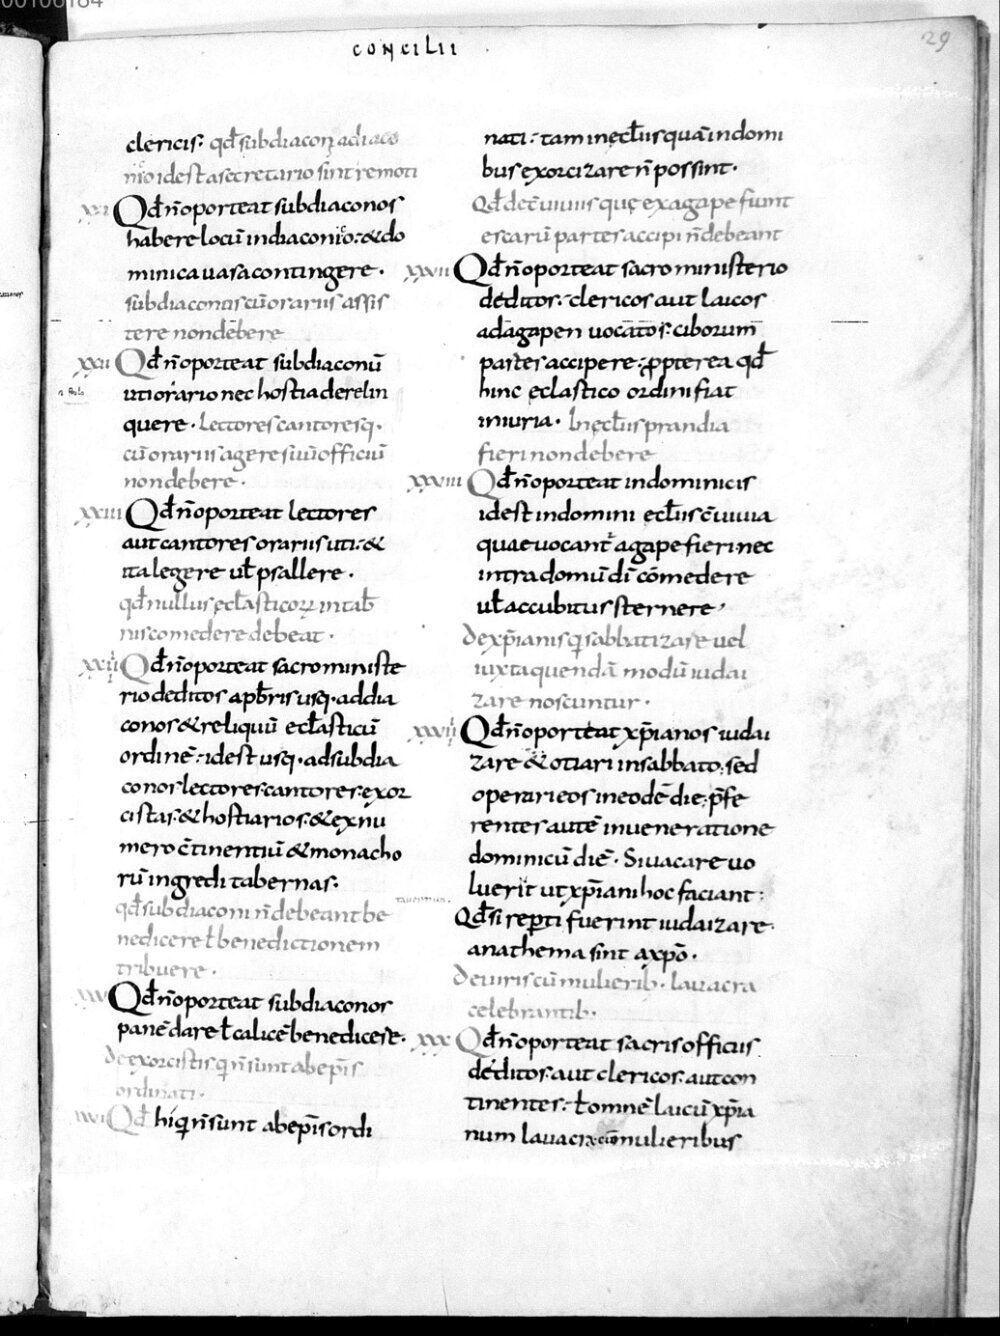 CONCILII
29
clericis: qđ subdiacon adiaco
nio idest asecretario sint remoti
xxi Qđ nͦ oporteat subdiaconos
habere locū indiaconio: & do
minica uasa contingere.
subdiaconus cū orariis assis
tere non debere
xxii Qđ n̄ oporteat subdiaconū
uti orario nec hostia derelin
quere. Lectores cantoresq·
cū orariis agere suū officiū
non debere.
xxiii Qđ n̄ oporteat lectores
aut cantores orariis uti: &
ita legere uł psallere.
qđ nullus ecłasticoꝝ intab̄
nis comedere debeat.
xxiiii Qđ n̄ oporteat sacro ministe
rio deditos apb̄ris usq· addia
conos & reliquū ecłasticū
ordinē: idest usq· adsubdia
conos lectores cantores exor
cistas: & hostiarios: & exnu
mero c̄tinentiū & monacho
rū ingredi tabernas:
qđ subdiaconi n̄ debeant be
nedicere ł benedictionem
tribuere.
xxv Qđ n̄ oporteat subdiaconos
panē dare ł calicē benedicere.
de exorcistis q̄ n̄ sunt abepis̄
ordinati.
xxvi Qđ hi q̄ n̄ sunt abepis̄ ordi
nati: tam inecłiis quā indomi
bus exorcizare n̄ possint.
Qđ dec̄uiuiis quę exagape fiunt
escarū partes accipi n̄ debeant
xxvii Qđ n̄ oporteat sacro ministerio
deditos: clericos aut laicos
ad agapen uocatos: ciborum
partes accipere: ꝓpterea qđ
hinc ecłastico ordini fiat
iniuria. In ęcłiis prandia
fieri non debere
xxviii Qđ n̄ oporteat indominicis
idest indomini ecłiis c̄uiuia
quae uocant̄ agape fieri nec
intra domū di̅ cōmedere
uł accubitus sternere,
De xp̄ianis q̄ sabbatizare uel
iuxta quendā modū iudai
zare noscuntur.
xxviiii Qđ n̄ oporteat xp̄ianos iudai
zare & otiari insabbato: sed
operari eos ineodē die: p̄fe
rentes autē inueneratione
dominicū diē. Si uacare uo
luerit ut xp̄iani hoc faciant:
Qđ si rep̄ti fuerint iudaizare
anathema sint axp̄o.
De uiris cū mulierib· lauacra
celebrantib·
xxx Qđ n̄ oporteat sacris officiis
deditos: aut clericos: aut con
tinentes: ł omnē laicū xp̄ia
num lauacra cū mulieribus